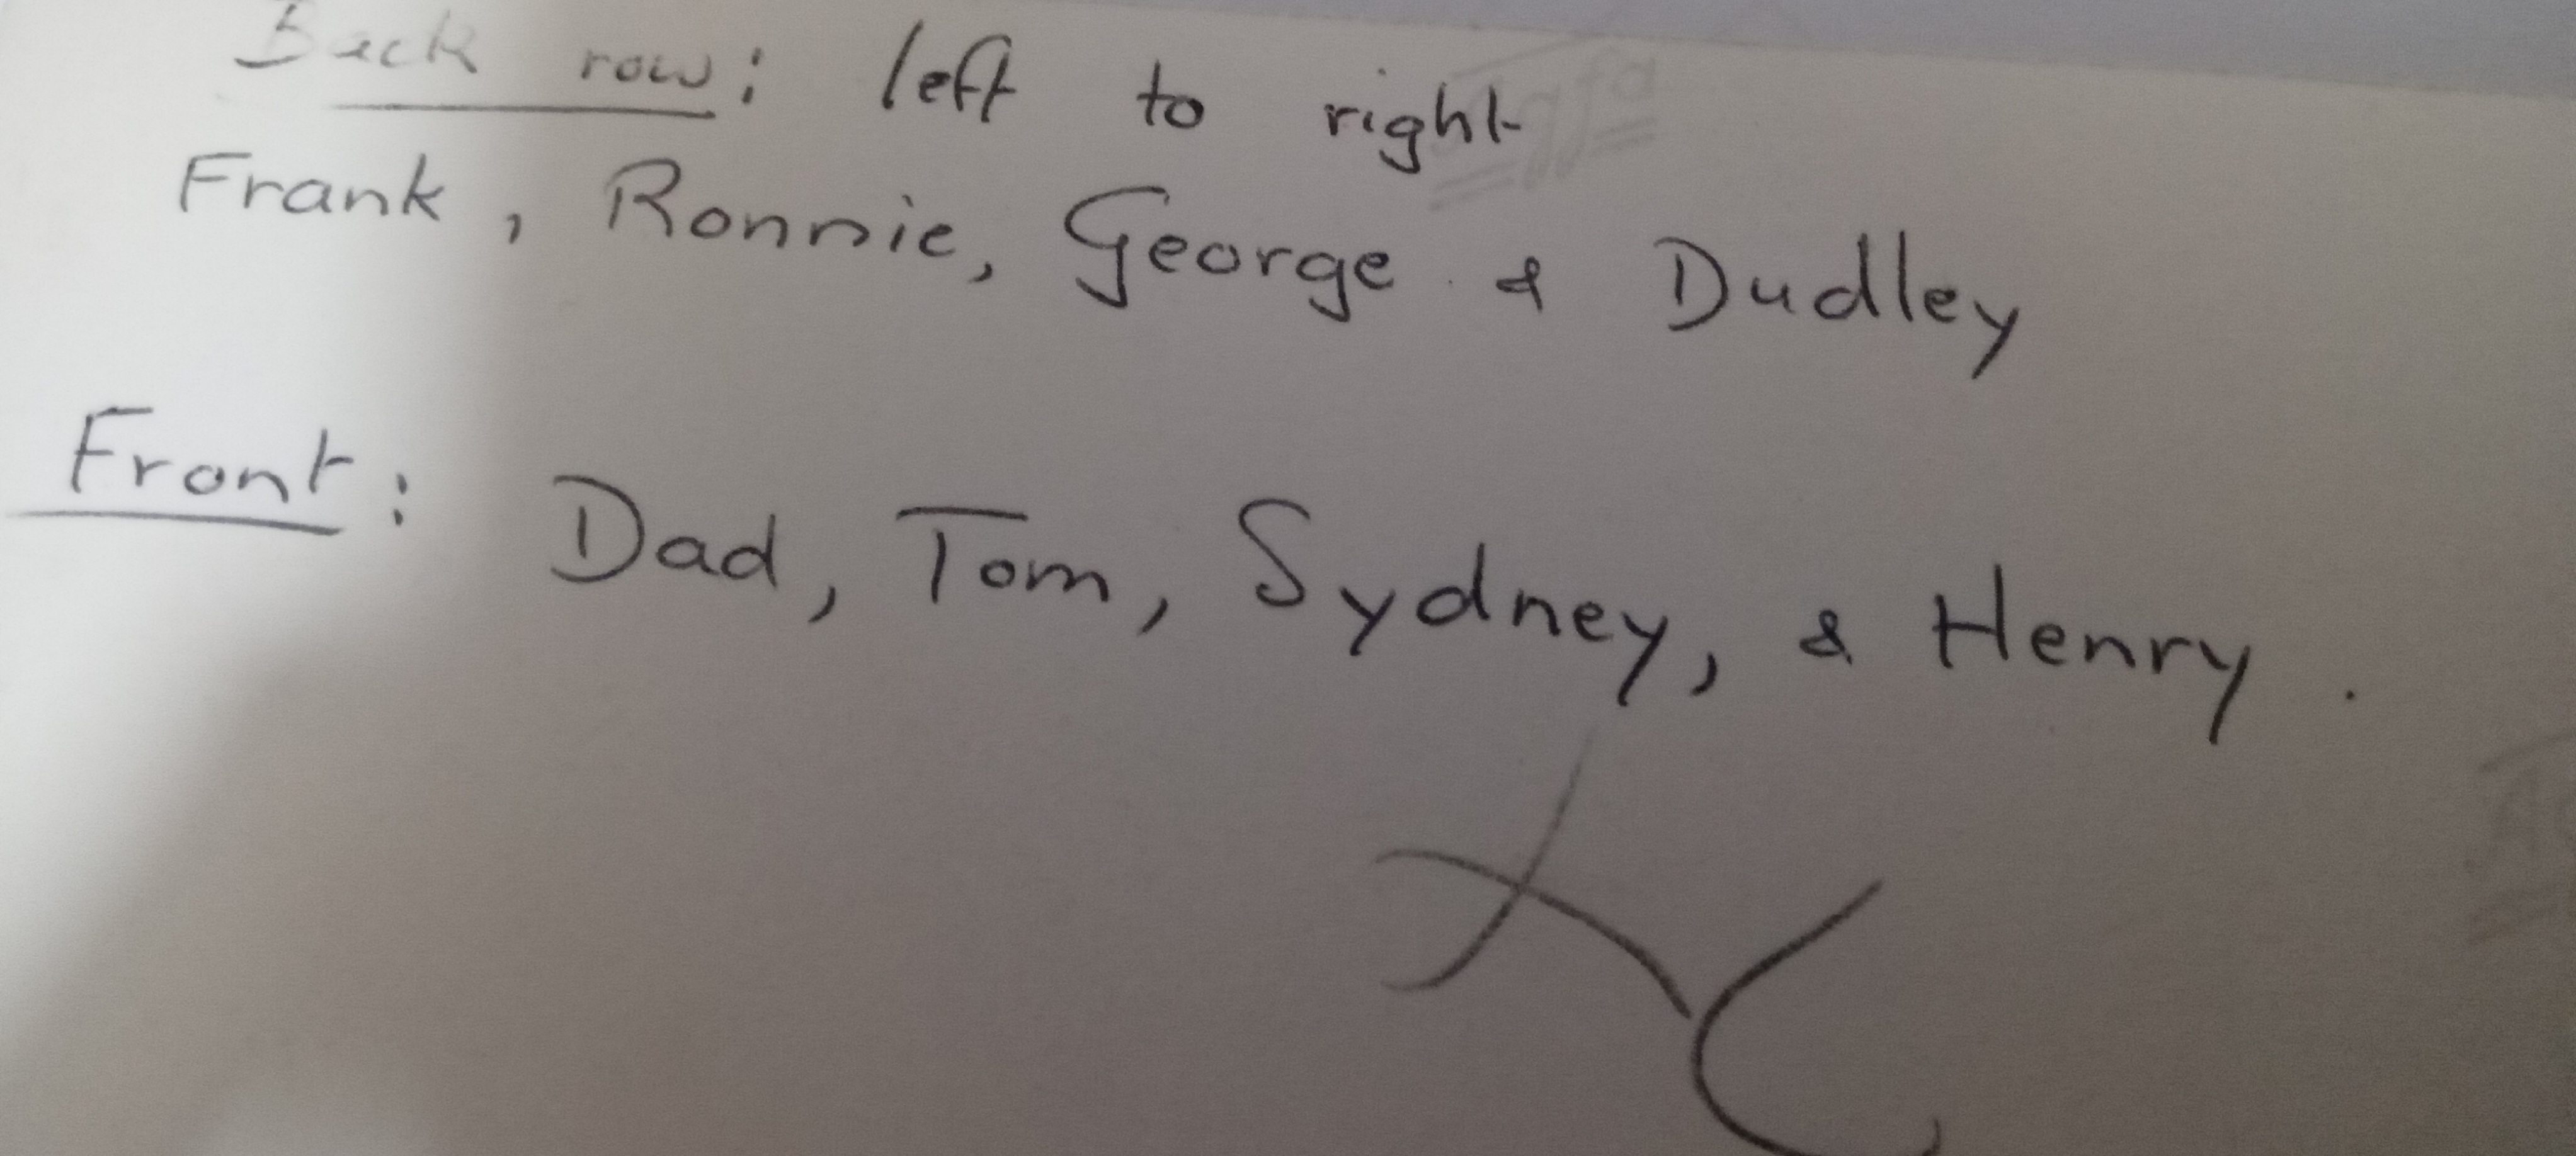 Back row: left to right
Agfa
Frank, Ronnie, George & Dudley
Front: Dad, Tom, Sydney, & Henry.